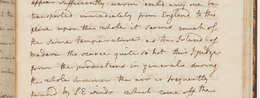 appear sufficiently warm could any one be
transported immediately from England to this
place upon the whole it seems much of
the same temperature as the Island of
madeira tho scarce quite so hot this I judge
from the productions in general during
the whole summer the air is frequently
by S E winds which come off the